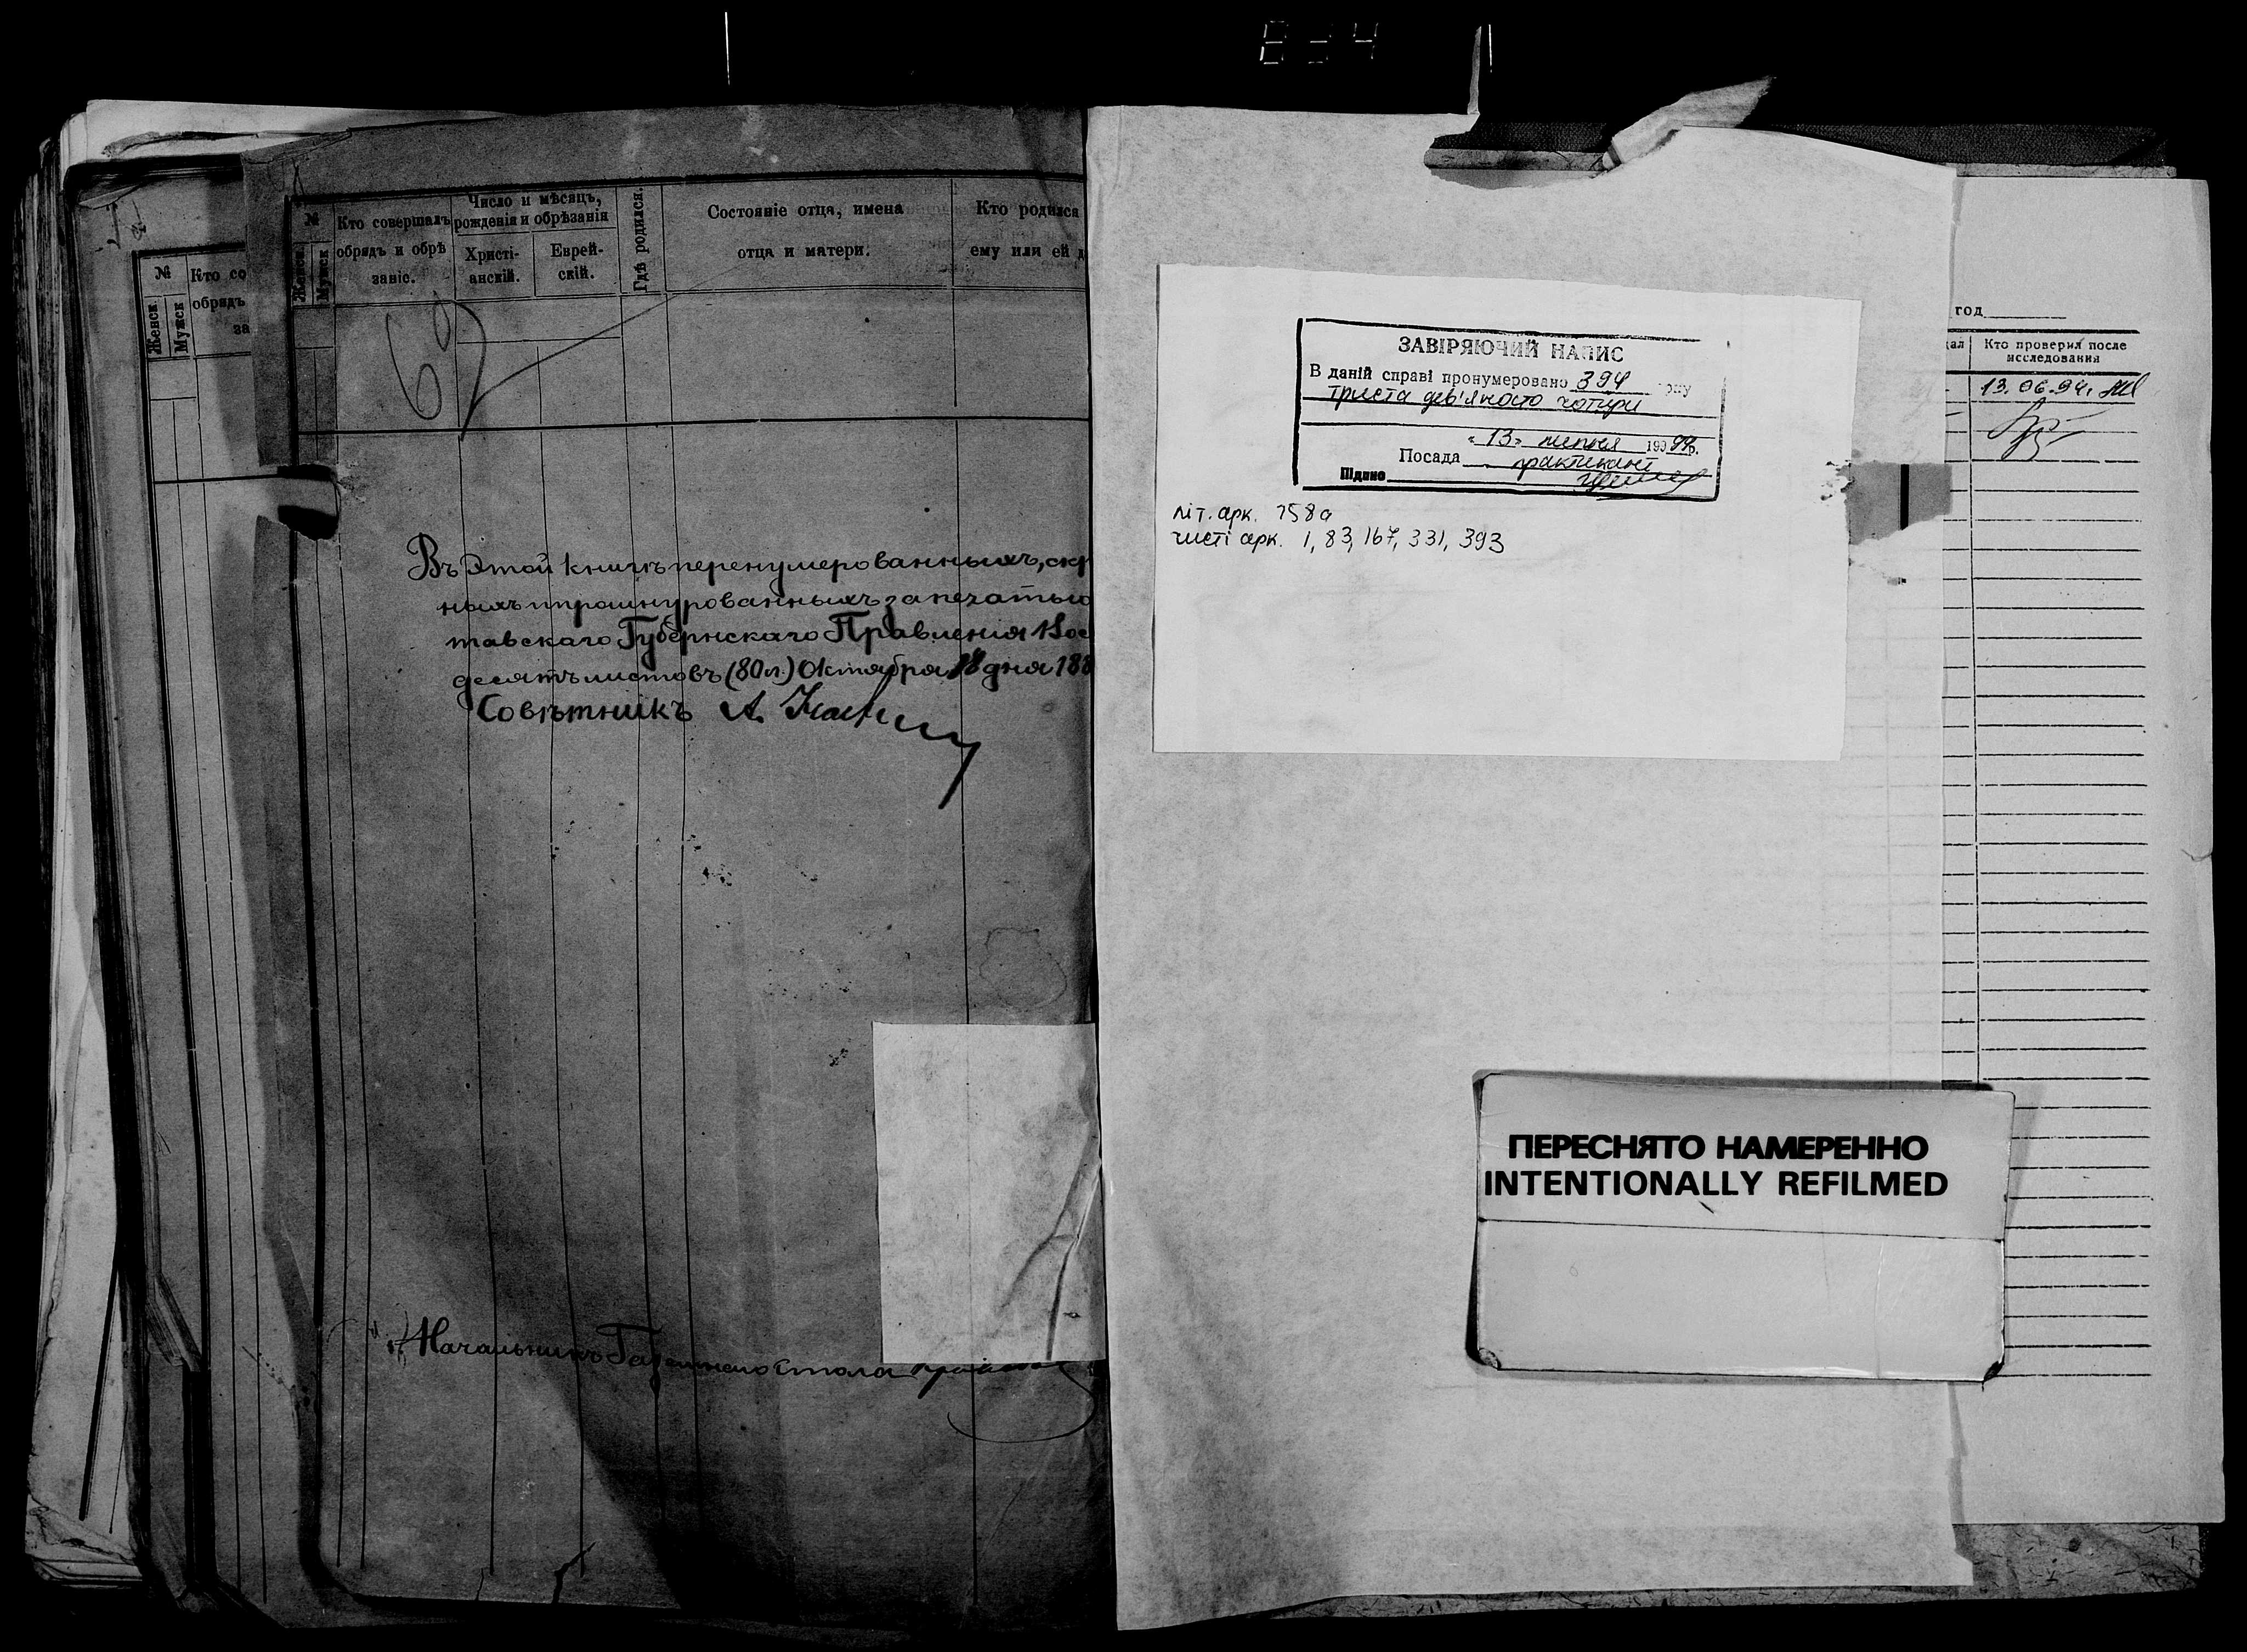 834
№
Женск.
Мужск
Кто со
обрядъ
за
№
Женск.
Мужск
Кто совершалъ
обрядъ и обрѣ
заніе.
Число и мѣсяцъ,
рожденія и обрѣзанія
Христі-
анскій.
Еврей-
скій.
Гдѣ родился.
Состояніе отца, имена
отца и матери.
Кто родился
ему или ей д
Въ этой книгѣ перенумерованныхъ, скр
ныхъ и прошнурованныхъ за печатью
тавскаго Губернскаго Правленія Вос
десятъ листовъ (80 л.) Октября 18 дня 188
Совѣтникъ А.
Начальникъ Газетнаго Стола
ЗАВІРЯЮЧИЙ НАПИС
В даній справі пронумеровано 394
триста дев'яносто чотири
"13" липня 1994р.
Посада практикант
Підпис
літ. арк. 158а
чисті арк. 1, 83, 167, 331, 393
год
дал
Кто проверил после
исследования
13.06.94.
ПЕРЕСНЯТО НАМЕРЕННО
INTENTIONALLY REFILMED